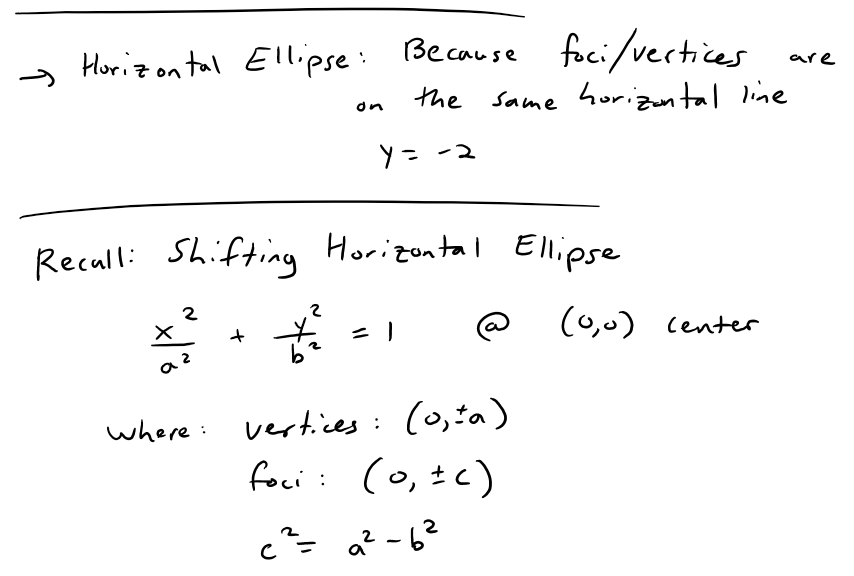 → Horizontal Ellipse: Because foci/vertices are
on the same horizontal line
y = -2
Recall: Shifting Horizontal Ellipse
x²/a² + y²/b² = 1 @ (0,0) center
where: vertices: (0,±a)
foci: (0, ±c)
c² = a² - b²